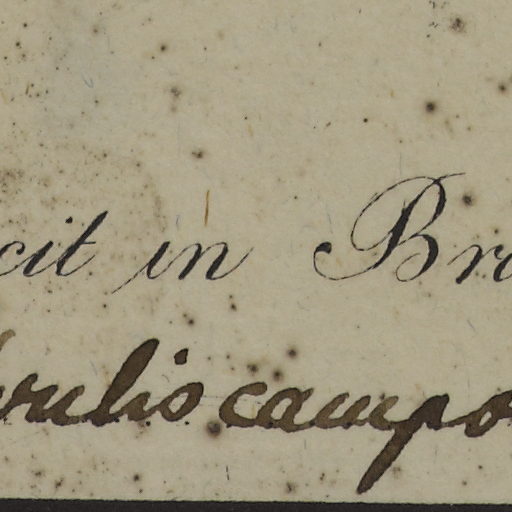 cit in Bra
rulio campo